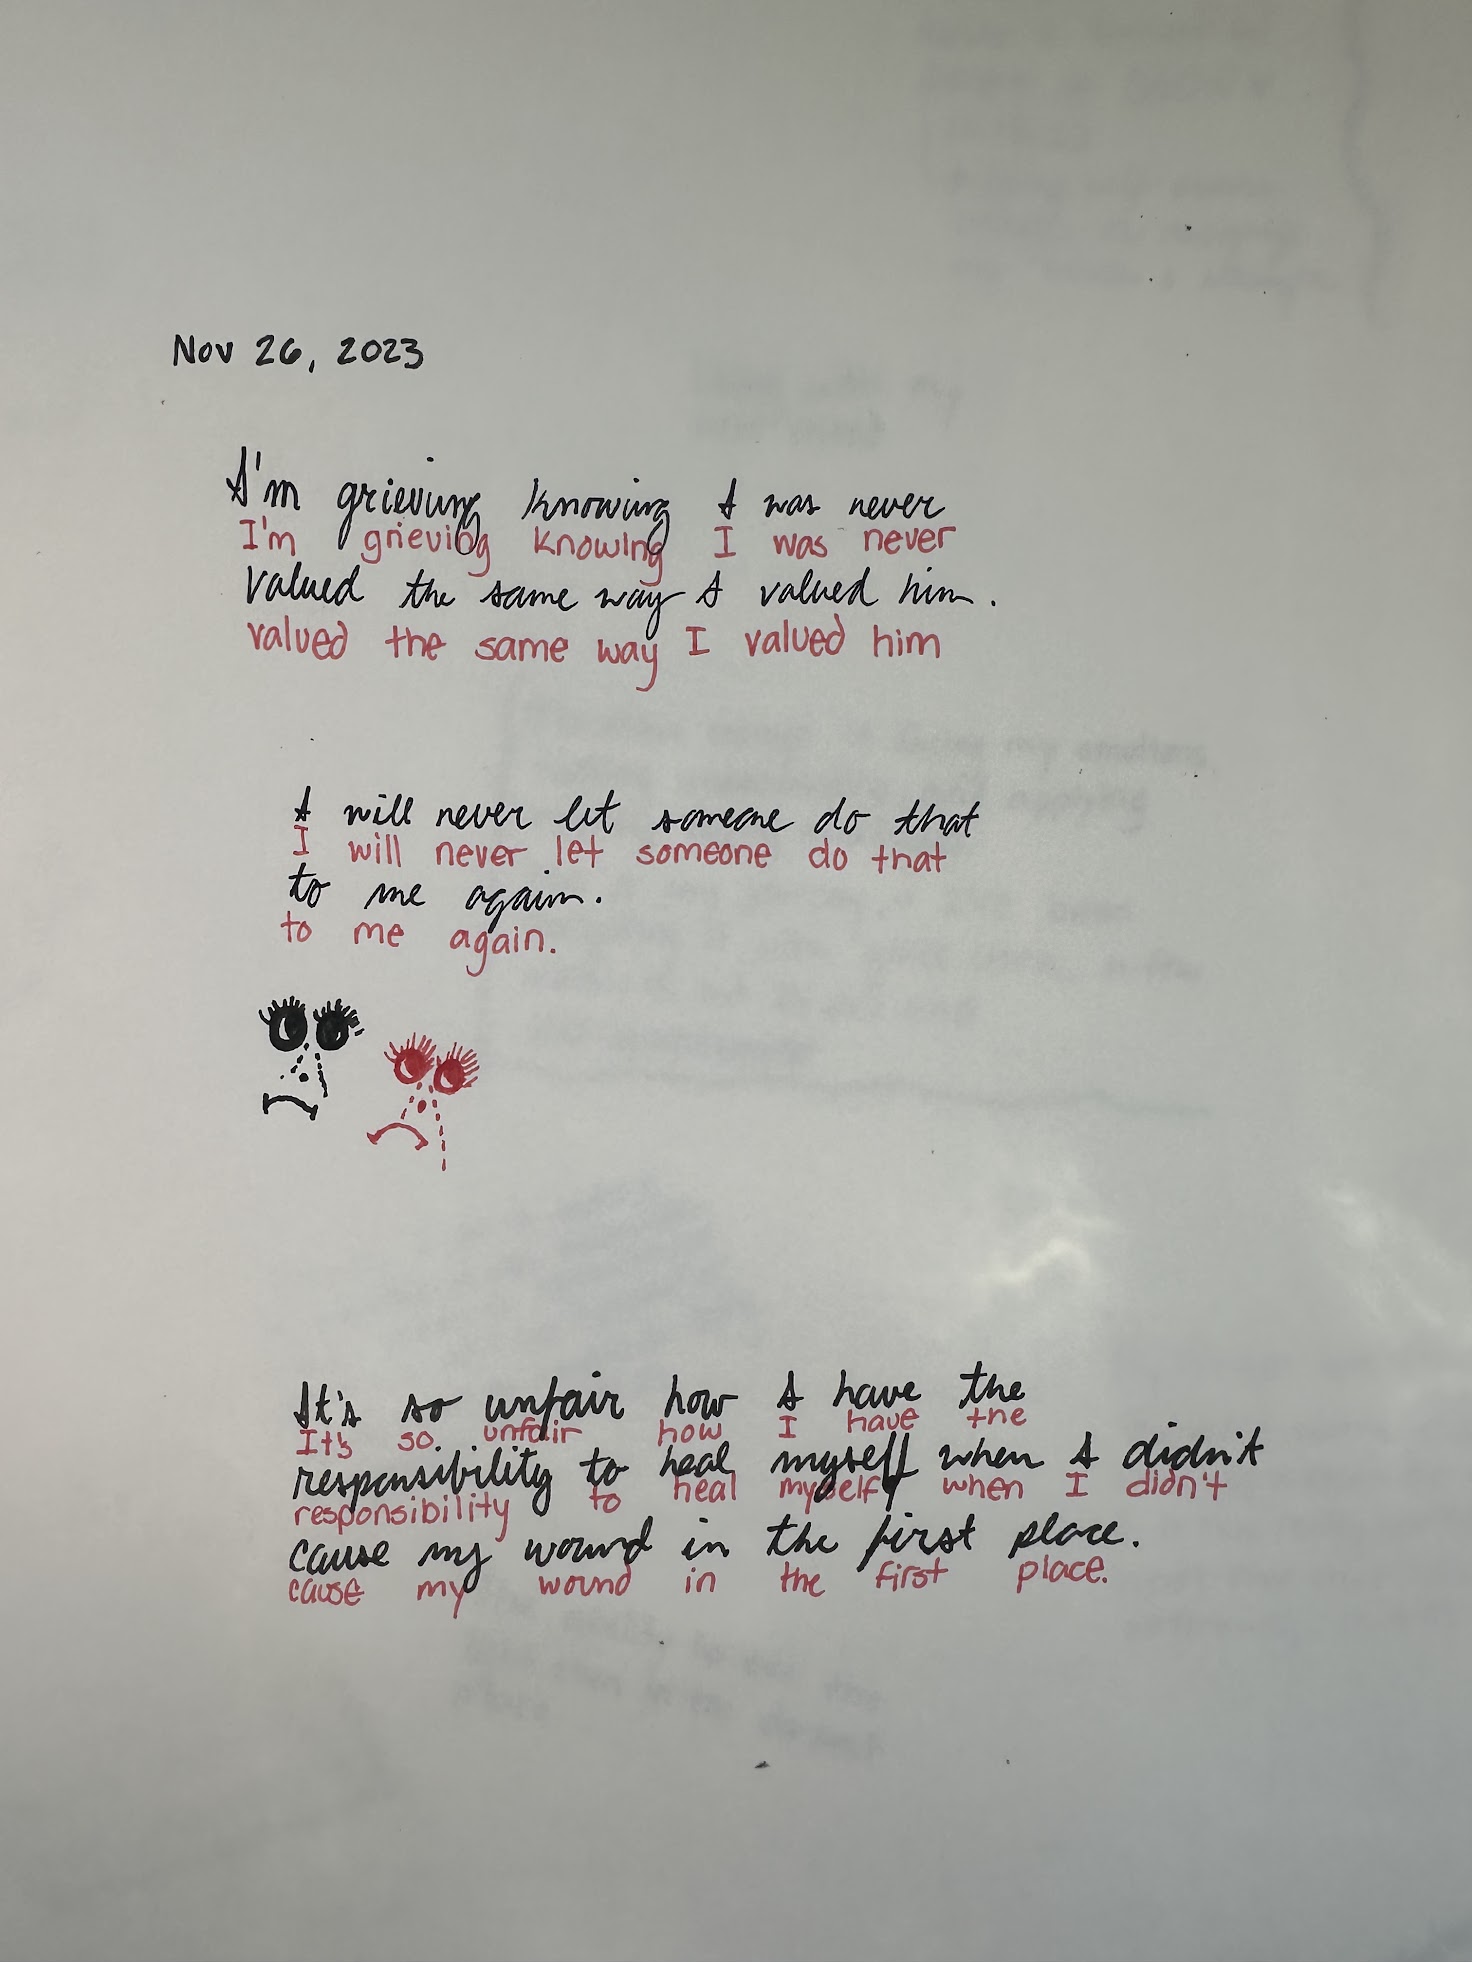 Nov 26, 2023
I'm grieving knowing I was never
I'm grieving knowing I was never
valued the same way I valued him.
valued the same way I valued him
I will never let someone do that
I will never let someone do that
to me again.
to me again.
It's so unfair how I have the
It's so unfair how I have the
responsibility to heal myself when I didn't
responsibility to heal myself when I didn't
cause my wound in the first place.
cause my wound in the first place.